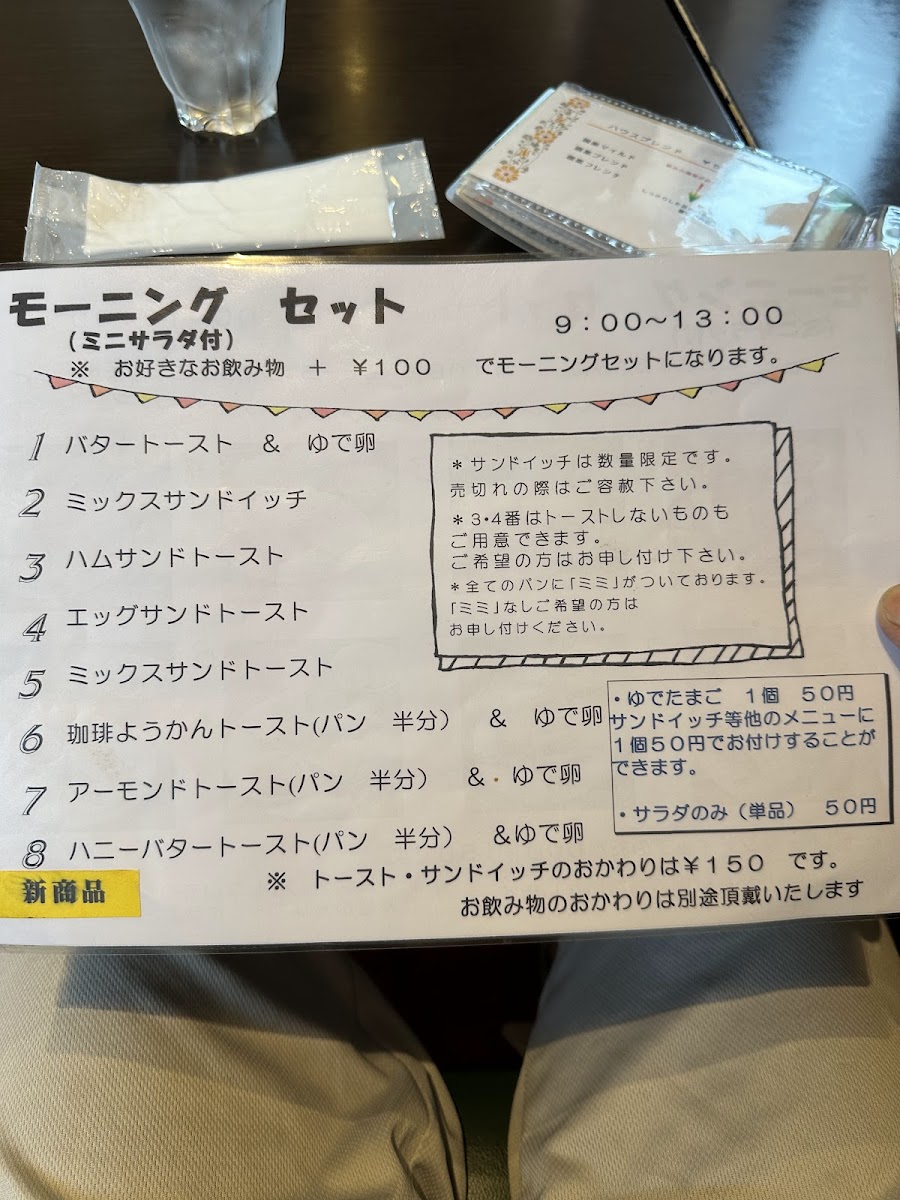 ハウスブレンド
モーニング セット
(ミニサラダ付)
9：00～13：00
※ お好きなお飲み物 ＋ ￥100 でモーニングセットになります。
1 バタートースト ＆ ゆで卵
2 ミックスサンドイッチ
3 ハムサンドトースト
4 エッグサンドトースト
5 ミックスサンドトースト
6 珈琲ようかんトースト(パン 半分） ＆ ゆで卵
7 アーモンドトースト(パン 半分） ＆ ゆで卵
8 ハニーバタートースト(パン 半分） ＆ゆで卵
新商品
＊サンドイッチは数量限定です。
売切れの際はご容赦下さい。
＊3・4番はトーストしないものも
ご用意できます。
ご希望の方はお申し付け下さい。
＊全てのパンに「ミミ」がついております。
「ミミ」なしご希望の方は
お申し付けください。
・ゆでたまご 1個 50円
サンドイッチ等他のメニューに
1個50円でお付けすることが
できます。
・サラダのみ（単品） 50円
※ トースト・サンドイッチのおかわりは￥150 です。
お飲み物のおかわりは別途頂戴いたします